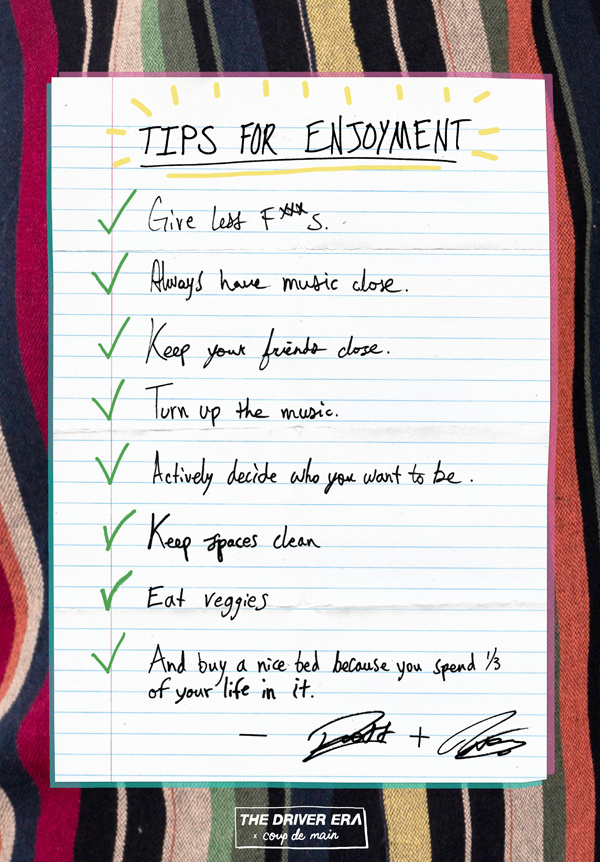 TIPS FOR ENJOYMENT
Give less F***s.
Always have music close.
Keep your friends close.
Turn up the music.
Actively decide who you want to be.
Keep spaces clean
Eat veggies
And buy a nice bed because you spend 1/3
of your life in it.
— +
THE DRIVER ERA
x coup de main